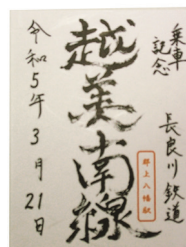 乗車
記念
長良川鉄道
越美南線
郡上八幡駅
令和5年3月21日